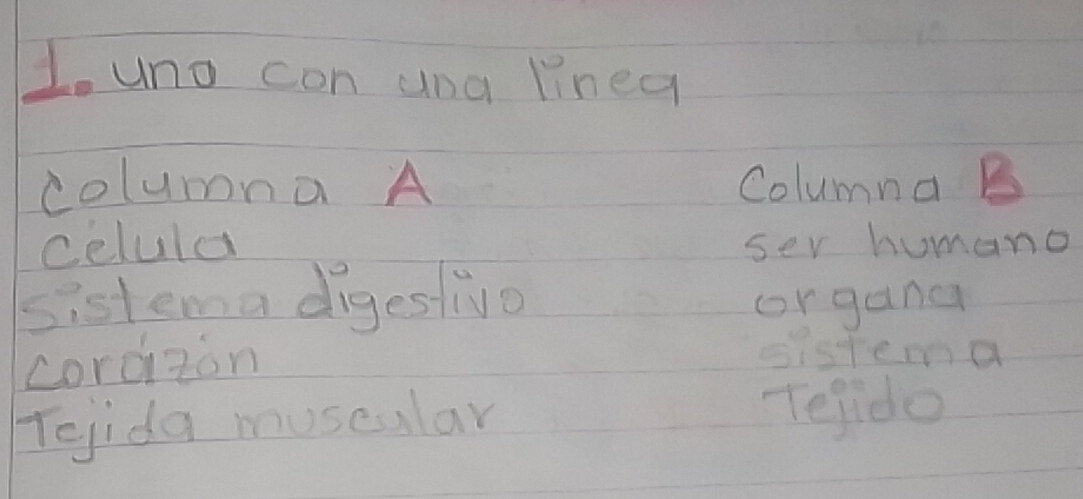 1. uno con una linea
Columna A Columna B
Célula ser humano
sistema digestivo organa
corazón sistema
Tejida muscular Tejido